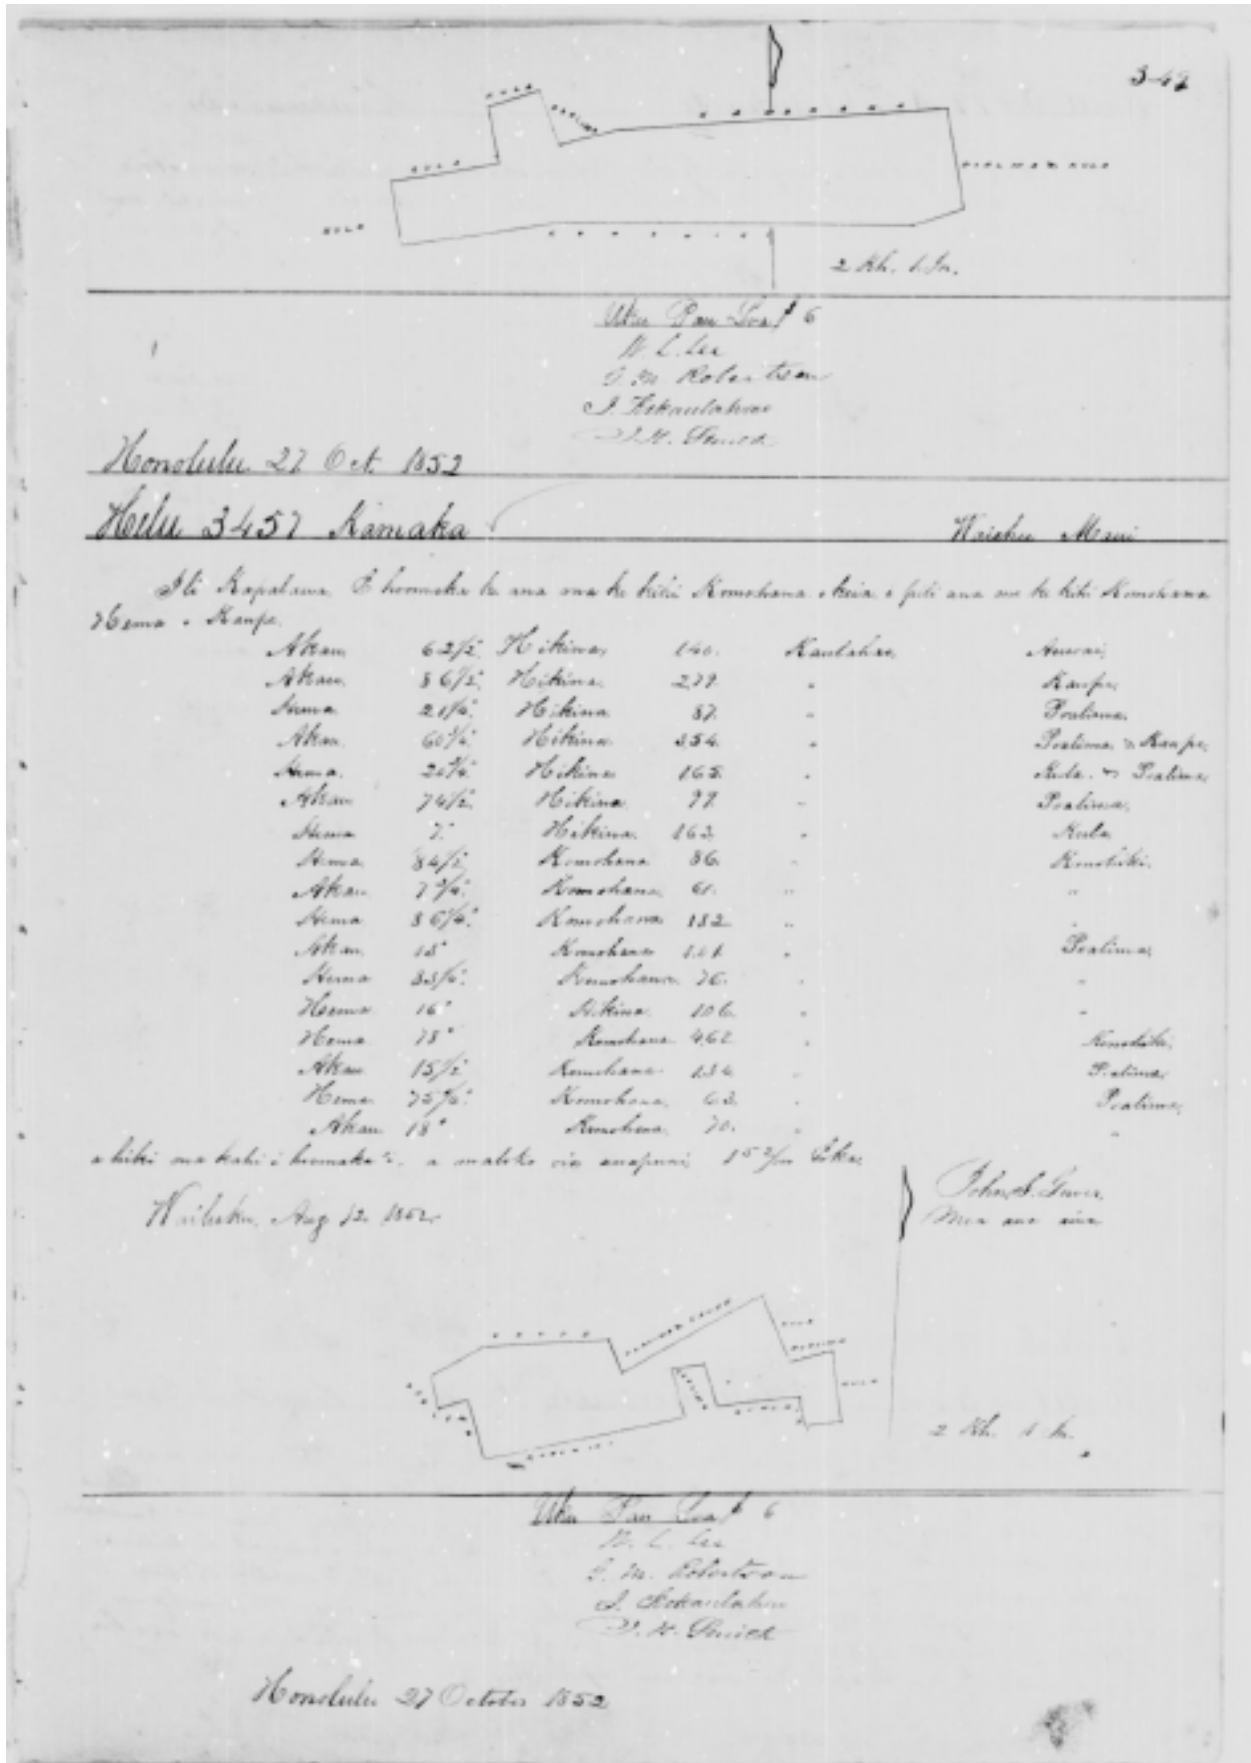 KULA
KULA
2 Kh. 1 In.
Uku Pau Loa $ 6
W. L. Lee
G. M. Robertson
J. Kekaulahao
J. H. Smith
Honolulu 27 Oct. 1852
Helu 3457 Kamaka Waiehu Maui
Ili Kapalawa. E hoomaka ke ana ma ke kihi Komohana o keia e pili ana me ke kihi Komohana
Hema o Kaupe.
Akau 62 1/2° Hikina 140. Kaulahao Auwai
Akau 86 1/2° Hikina 279. " Kaupe
Hema 21 1/4° Hikina 87. " Poalima
Akau 60 Hikina 354. " Poalima Kaupe
Hema 20 Hikina 165. " Kula Poalima
Akau 74 1/2° Hikina 77. " Poalima
Hema 7° Hikina 163. " Kula
Hema 84 1/2° Komohana 86. " Konohiki
Akau 7 Komohana 61. " "
Hema 86 1/4° Komohana 182. " "
Akau 18° Komohana 101. " Poalima
Hema 83 Komohana 76. " "
Hema 16° Hikina 106. " "
Hema 78° Komohana 462. " Konohiki
Akau 15 1/2° Komohana 134. " Poalima
Hema 75 Komohana 63. " Poalima
Akau 18° Komohana 70. " "
a hiki ma kahi i hoomaka ai. a maloko oia anapuni Eka
Wailuku, Aug 12. 1852.
John S. Gower
Mea ana aina
KULA
KULA
2 Kh. 1 In.
Uku Pau Loa $ 6
W. L. Lee
G. M. Robertson
J. Kekaulahao
J. H. Smith
Honolulu 27 October 1852